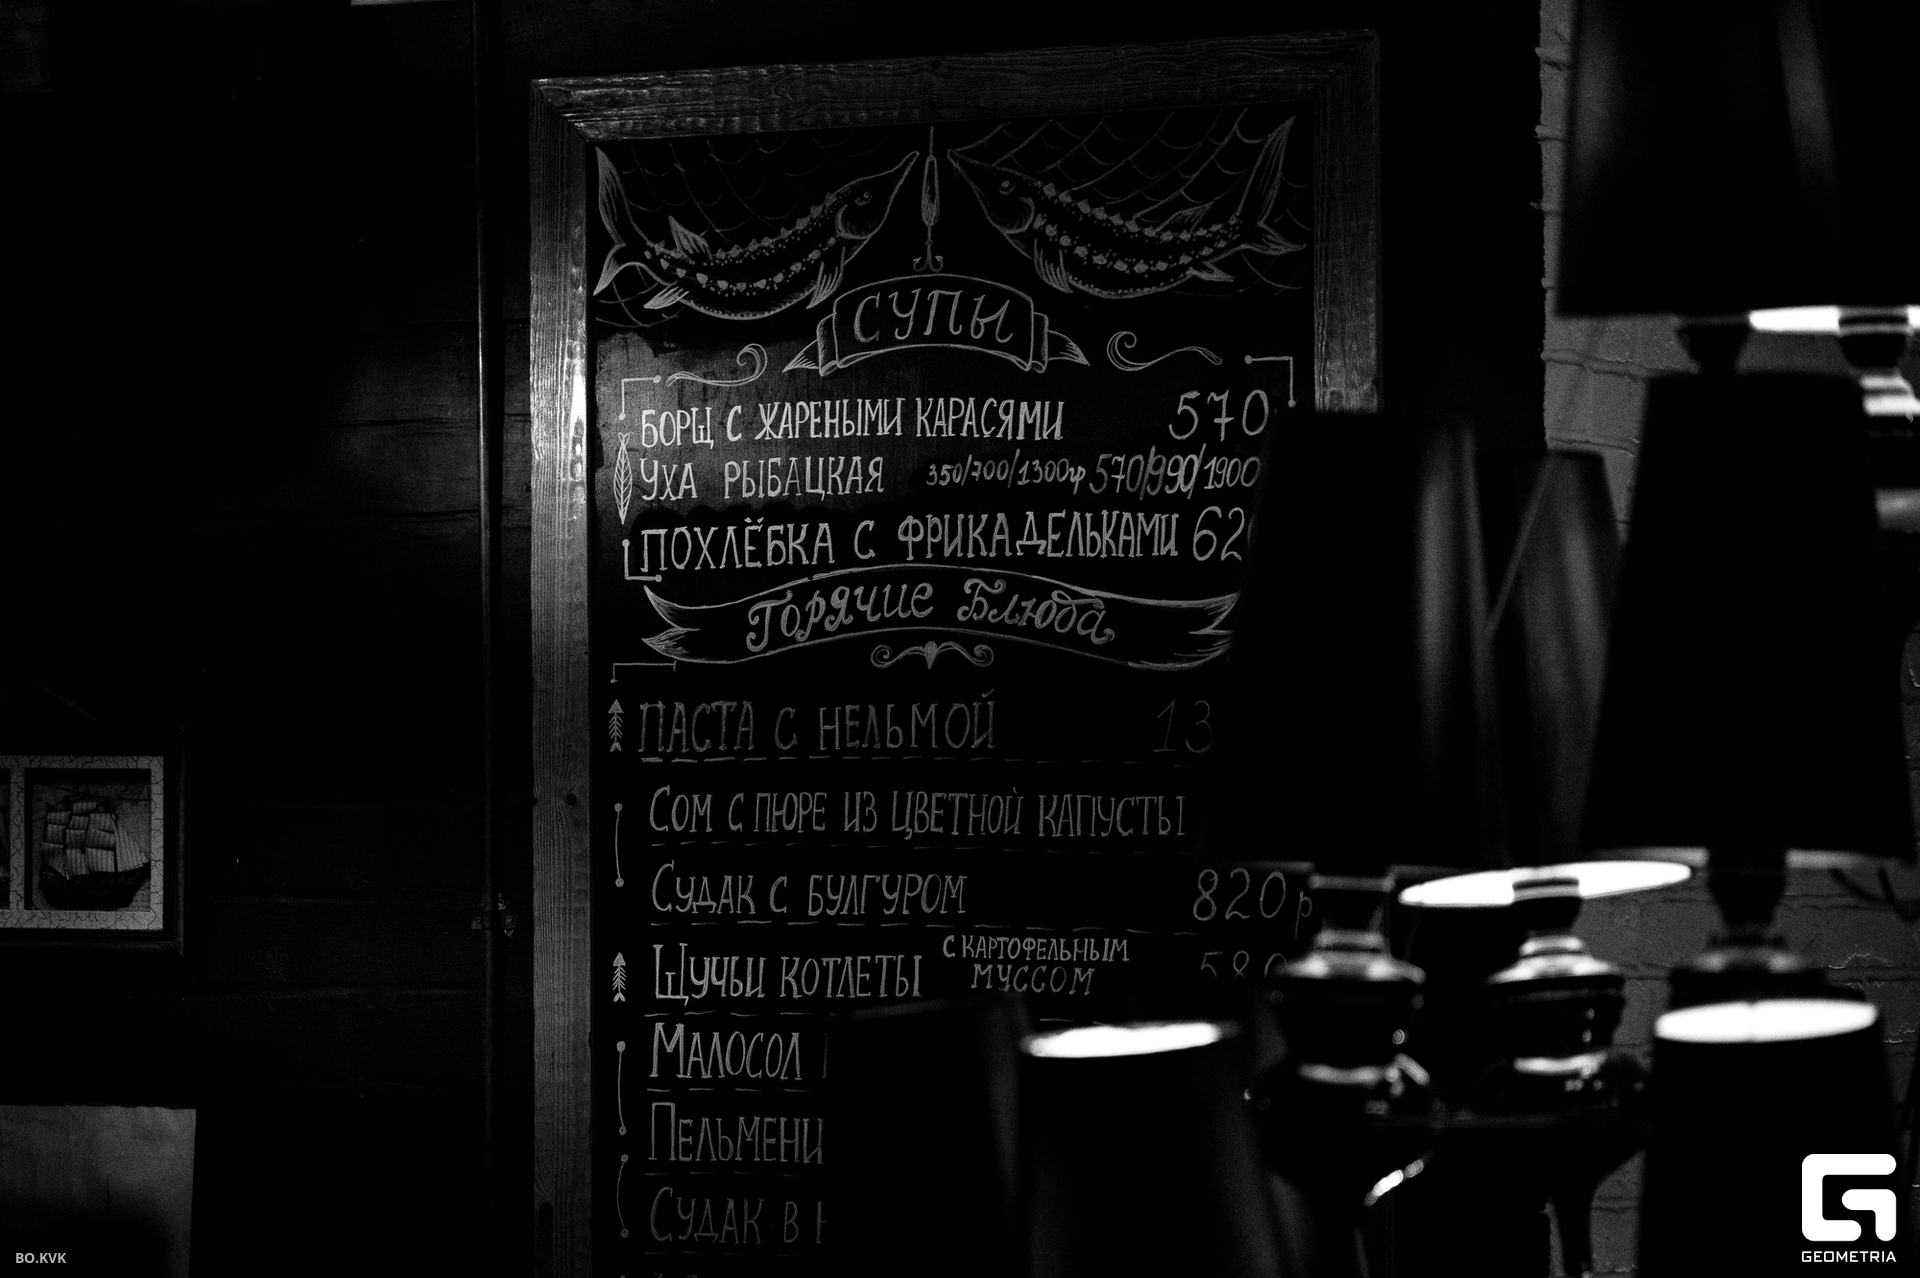 СУПЫ
БОРЩ С ЖАРЕНЫМИ КАРАСЯМИ 570
УХА РЫБАЦКАЯ 350/700/1300гр 570/990/1900
ПОХЛЁБКА С ФРИКАДЕЛЬКАМИ 62
Горячие Блюда
ПАСТА С НЕЛЬМОЙ 13
СОМ С ПЮРЕ ИЗ ЦВЕТНОЙ КАПУСТЫ
СУДАК С БУЛГУРОМ 820 р
ЩУЧЬИ КОТЛЕТЫ С КАРТОФЕЛЬНЫМ МУССОМ 580
МАЛОСОЛ
ПЕЛЬМЕНИ
СУДАК В
BO.KVK
GEOMETRIA